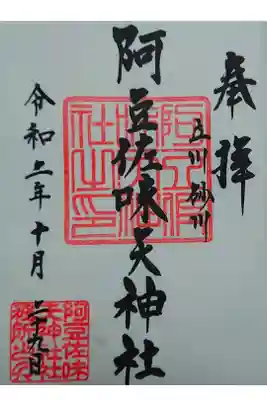 奉拝
立川 砂川
阿豆佐味天神社
令和二年十月二十九日
阿豆佐
社之印
阿豆佐味
天神社